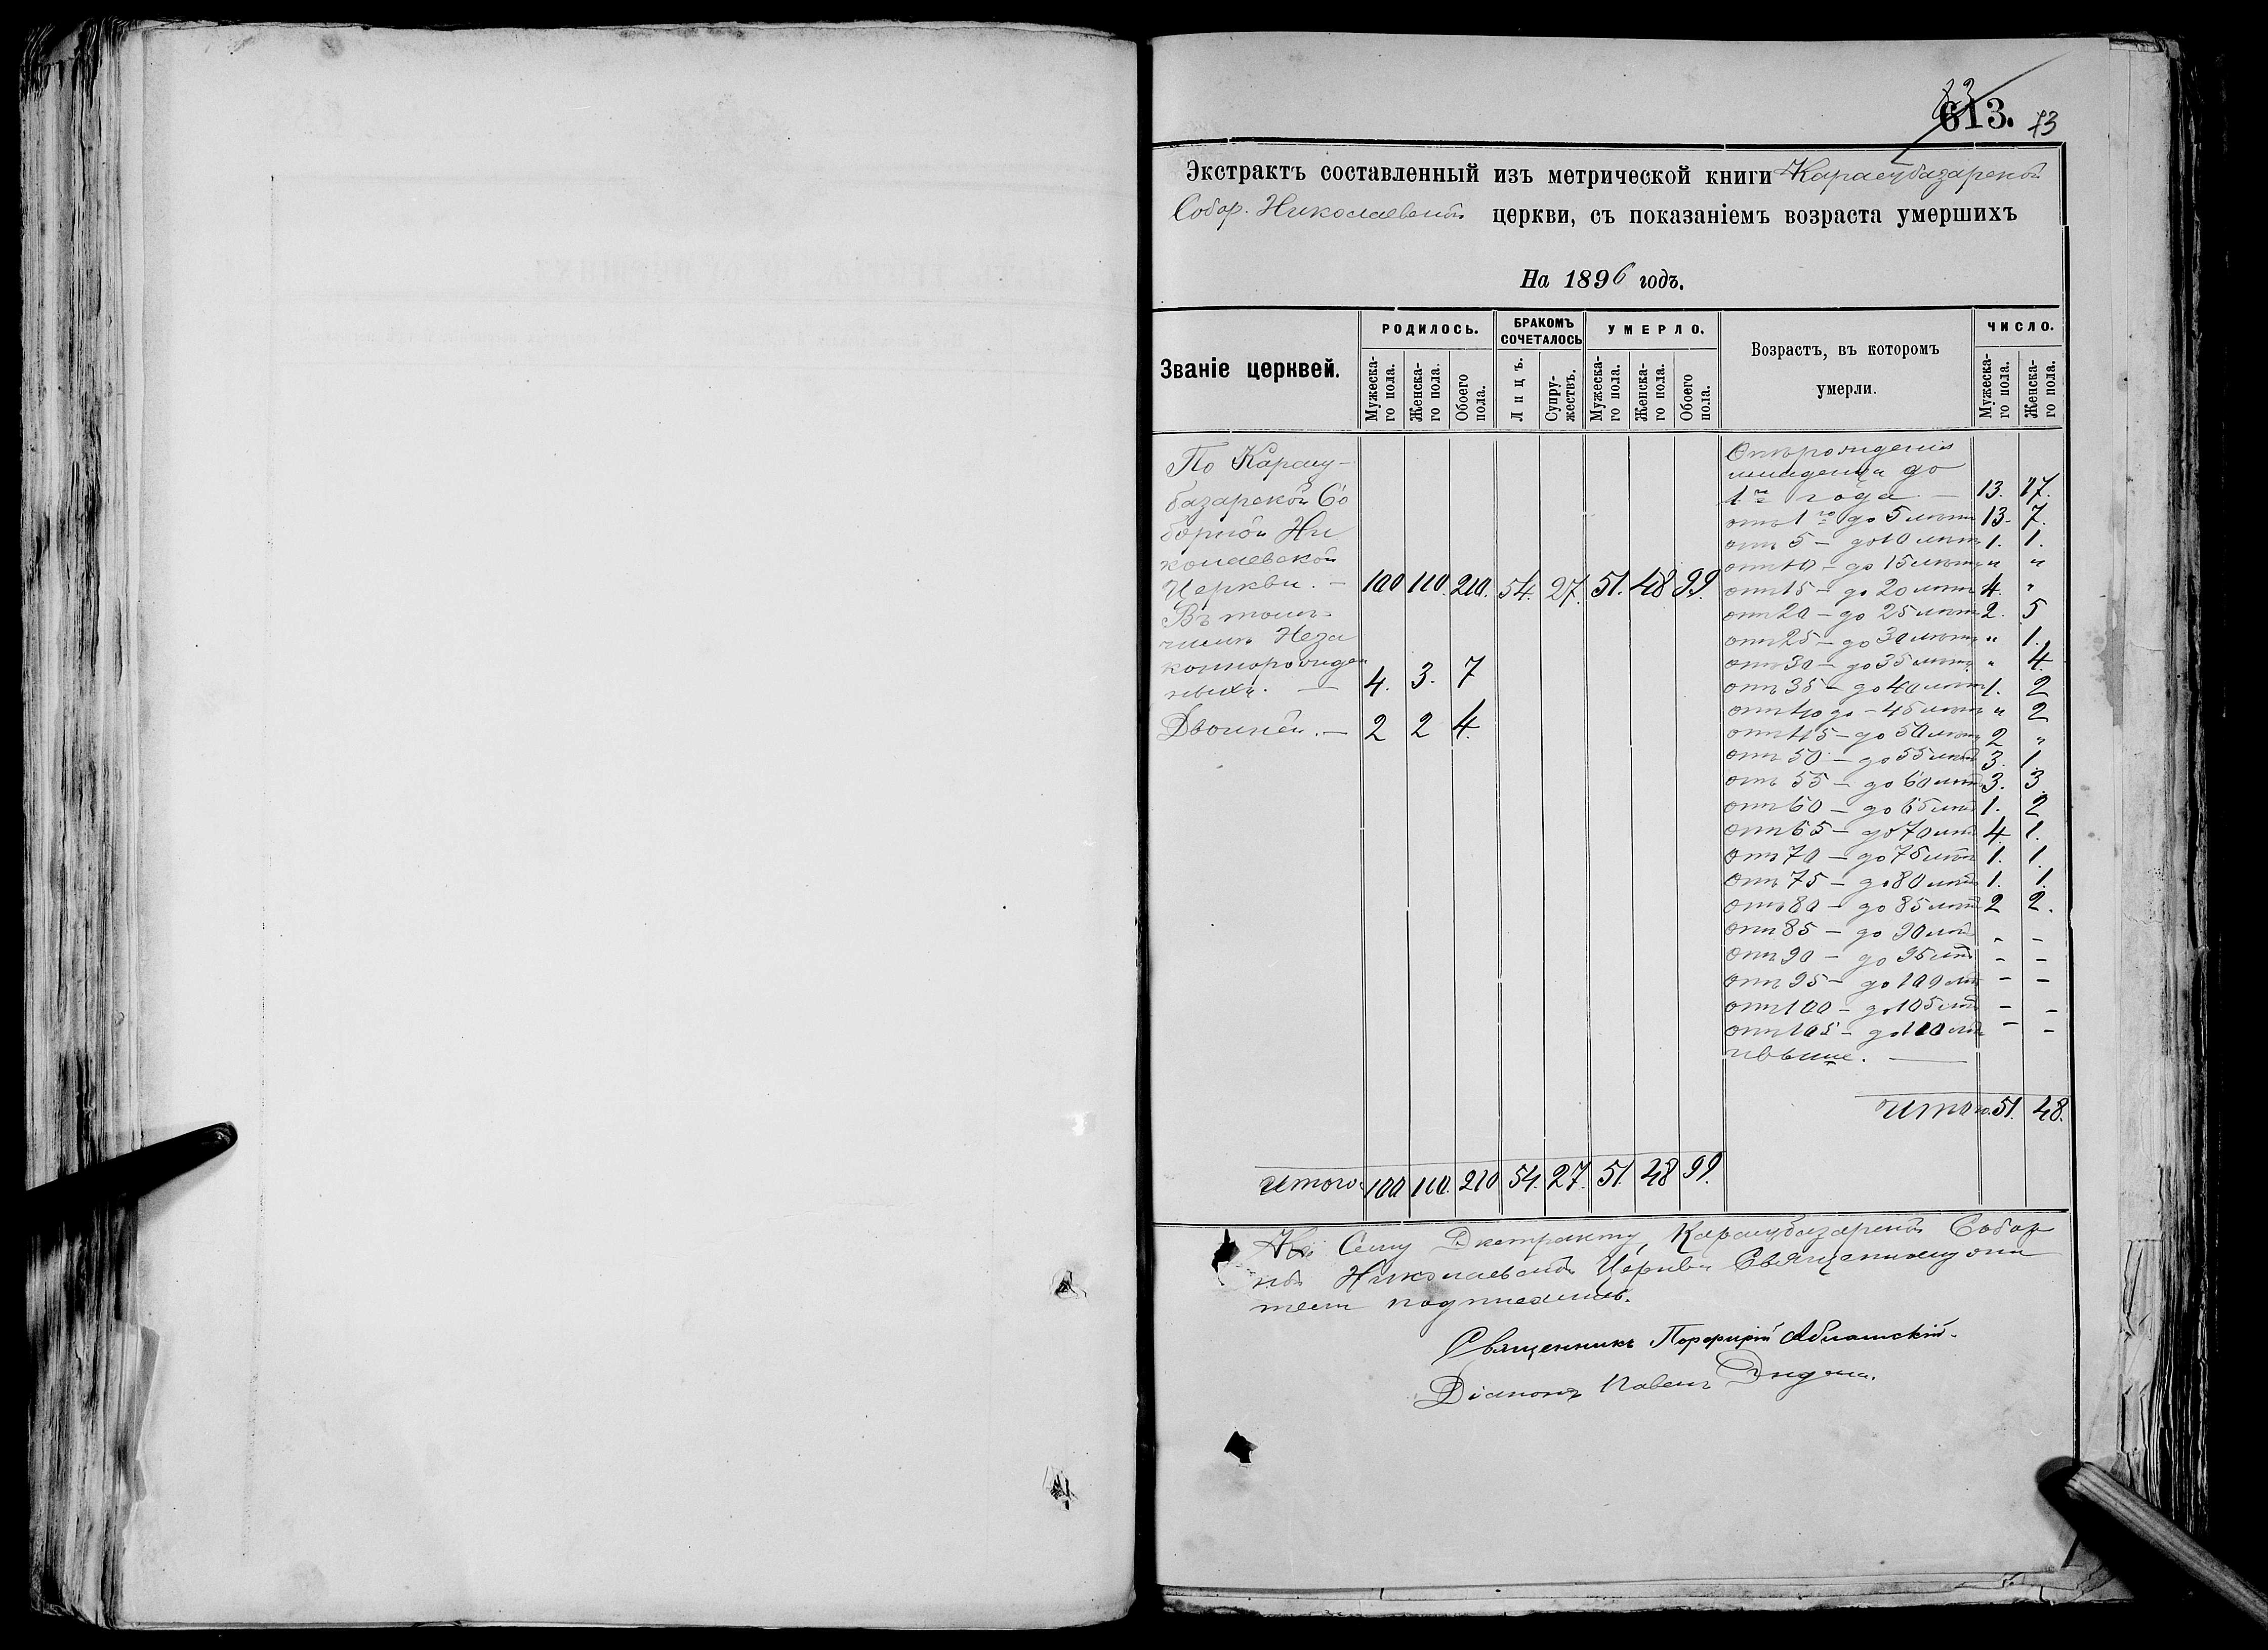 613. 73
Экстрактъ составленный изъ метрической книги Карасубазарской
Собор. Николаевской церкви, съ показаніемъ возраста умершихъ
На 1896 годъ.
Званіе церквей.
РОДИЛОСЬ.
Мужеска-го пола.
Женска-го пола.
Обоего пола.
БРАКОМЪ СОЧЕТАЛОСЬ
Лицъ.
Супру-жествъ.
УМЕРЛО.
Мужеска-го пола.
Женска-го пола.
Обоего пола.
Возрастъ, въ которомъ
умерли.
ЧИСЛО.
Мужеска-го пола.
Женска-го пола.
По Карасу-
базарской Со
борной Ни
колаевской
Церкви. — 100 110. 210. 54. 27. 51. 48 99.
Въ томъ
числѣ Неза
коннорожден
ныхъ. — 4. 3. 7
Двойней. — 2 2 4.
Отъ рожденія
младенца до
1го года — 13. 17.
отъ 1го до 5 лѣтъ 13. 7.
отъ 5 — до 10 лѣтъ 1. 1.
отъ 10 — до 15 лѣтъ " "
отъ 15 — до 20 лѣтъ 4. "
отъ 20 — до 25 лѣтъ 2. 5
отъ 25 — до 30 лѣтъ " 1.
отъ 30 — до 35 лѣтъ " 4.
отъ 35 — до 40 лѣтъ 1. 2
отъ 40 до — 45 лѣтъ " 2
отъ 45 — до 50 лѣтъ 2 "
отъ 50 — до 55 лѣтъ 3. 1.
отъ 55 — до 60 лѣтъ 3. 3.
отъ 60 — до 65 лѣтъ 1. 2
отъ 65 — до 70 лѣтъ 4. 1.
отъ 70 — до 75 лѣтъ 1. 1.
отъ 75 — до 80 лѣтъ 1. 1.
отъ 80 — до 85 лѣтъ 2 2.
отъ 85 — до 90 лѣтъ - -
отъ 90 — до 95 лѣтъ - -
отъ 95 — до 100 лѣтъ - -
отъ 100 — до 105 лѣтъ - -
отъ 105 — до 110 лѣтъ - -
и выше. —
Итого. 51. 48.
Итого 100 110. 210 54. 27. 51. 48 99.
Къ Сему Экстракту, Карасубазарской Собор
ной Николаевской Церкви Священнослужи
тели подписались.
Священникъ Порфирій
Діаконъ Павелъ